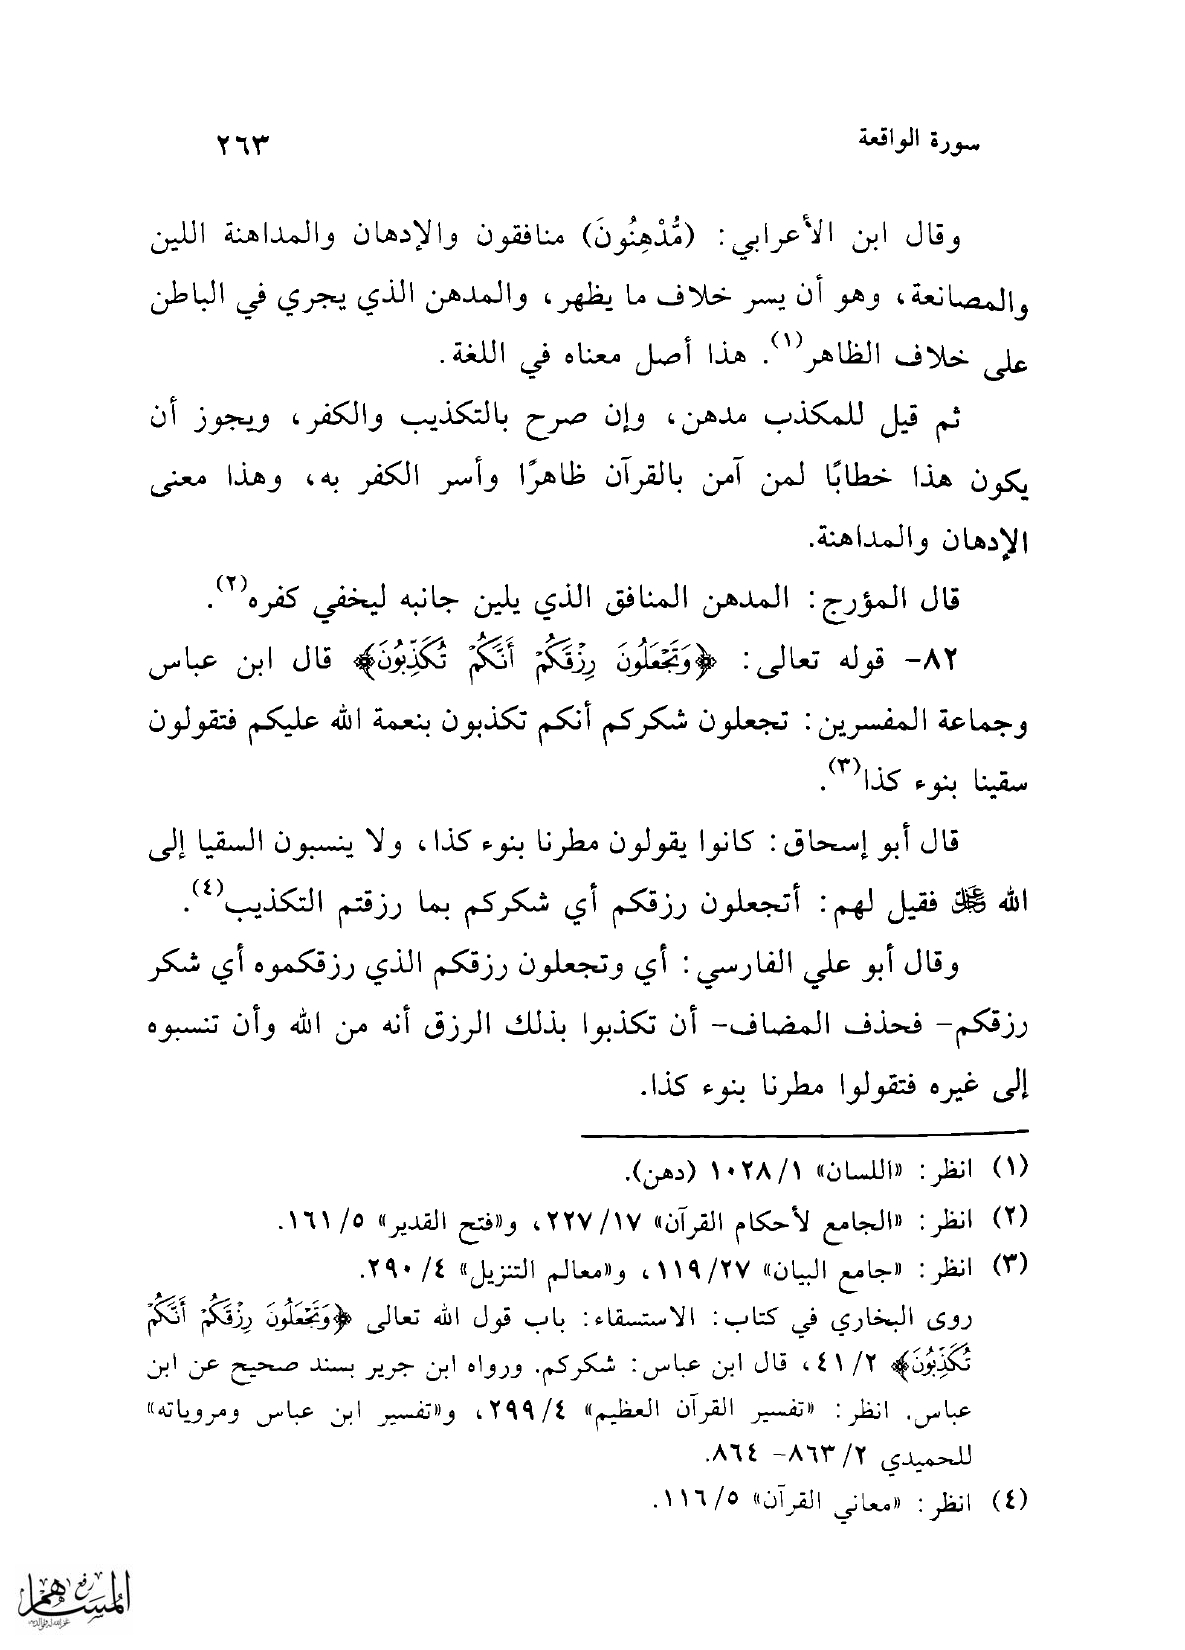 سورة الواقعة ٢٦٣
وقال ابن الأعرابي: (مُّدْهِنُونَ) منافقون والإدهان والمداهنة اللين
والمصانعة، وهو أن يسر خلاف ما يظهر، والمدهن الذي يجري في الباطن
على خلاف الظاهر(١). هذا أصل معناه في اللغة.
ثم قيل للمكذب مدهن، وإن صرح بالتكذيب والكفر، ويجوز أن
يكون هذا خطابًا لمن آمن بالقرآن ظاهرًا وأسر الكفر به، وهذا معنى
الإدهان والمداهنة.
قال المؤرج: المدهن المنافق الذي يلين جانبه ليخفي كفره(٢).
٨٢- قوله تعالى: ﴿وَتَجْعَلُونَ رِزْقَكُمْ أَنَّكُمْ تُكَذِّبُونَ﴾ قال ابن عباس
وجماعة المفسرين: تجعلون شكركم أنكم تكذبون بنعمة الله عليكم فتقولون
سقينا بنوء كذا(٣).
قال أبو إسحاق: كانوا يقولون مطرنا بنوء كذا، ولا ينسبون السقيا إلى
الله عَزَّ وَجَلَّ فقيل لهم: أتجعلون رزقكم أي شكركم بما رزقتم التكذيب(٤).
وقال أبو علي الفارسي: أي وتجعلون رزقكم الذي رزقكموه أي شكر
رزقكم- فحذف المضاف- أن تكذبوا بذلك الرزق أنه من الله وأن تنسبوه
إلى غيره فتقولوا مطرنا بنوء كذا.
(١) انظر: «اللسان» ١٠٢٨/١ (دهن).
(٢) انظر: «الجامع لأحكام القرآن» ٢٢٧/١٧، و«فتح القدير» ١٦١/٥.
(٣) انظر: «جامع البيان» ١١٩/٢٧، و«معالم التنزيل» ٢٩٠/٤.
روى البخاري في كتاب: الاستسقاء: باب قول الله تعالى ﴿وَتَجْعَلُونَ رِزْقَكُمْ أَنَّكُمْ
تُكَذِّبُونَ﴾ ٤١/٢، قال ابن عباس: شكركم. ورواه ابن جرير بسند صحيح عن ابن
عباس. انظر: «تفسير القرآن العظيم» ٢٩٩/٤، و«تفسير ابن عباس ومروياته»
للحميدي ٨٦٣/٢- ٨٦٤.
(٤) انظر: «معاني القرآن» ١١٦/٥.